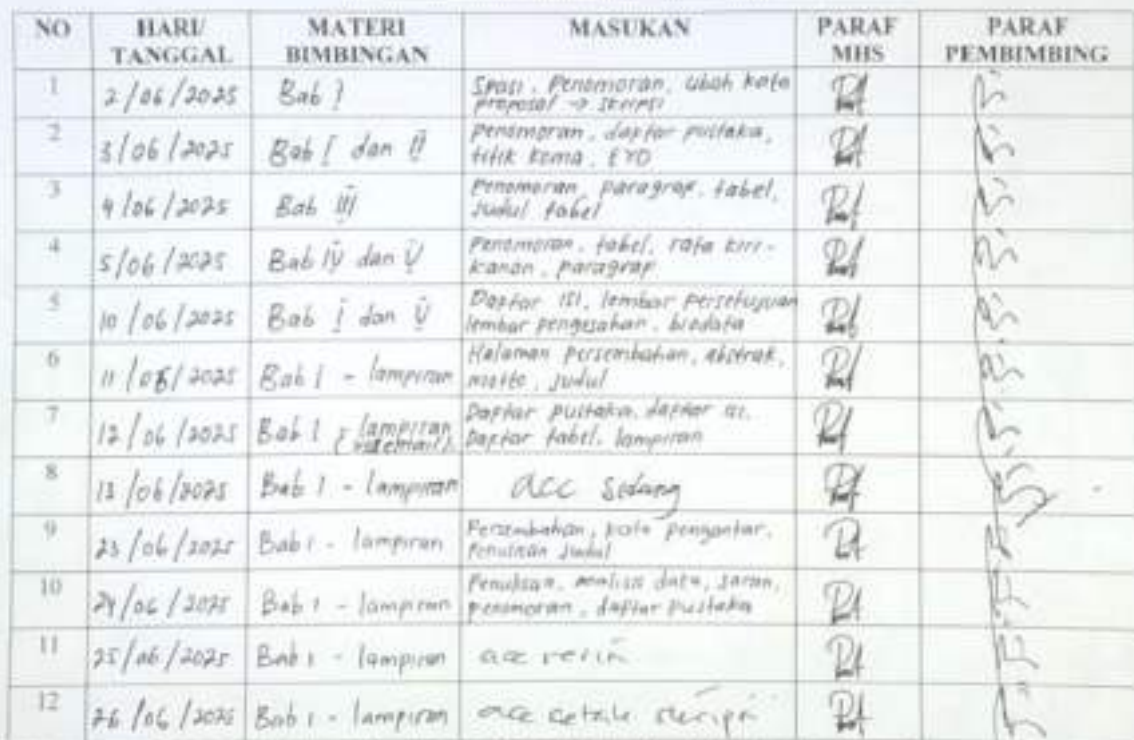 NO HARI/ TANGGAL MATERI BIMBINGAN MASUKAN PARAF MHS PARAF PEMBIMBING
1 2/06/2025 Bab I Spasi, Penomoran, ubah kata
proposal → skripsi
2 3/06/2025 Bab I dan II Penomoran, daptar pustaka,
titik koma, EYD
3 4/06/2025 Bab III Penomoran, paragrap, tabel,
Judul tabel
4 5/06/2025 Bab IV dan V Penomoran, tabel, rata kiri-
kanan, paragrap
5 10/06/2025 Bab I dan V Daptar isi, lembar persetujuan
lembar pengesahan, biodata
6 11/06/2025 Bab I - lampiran Halaman persembahan, abstrak,
motto, judul
7 12/06/2025 Bab I - lampiran Daptar pustaka, daptar isi,
Daptar tabel, lampiran
8 13/06/2025 Bab I - lampiran acc sidang
9 23/06/2025 Bab I - lampiran Persembahan, kata pengantar,
Penulisan Judul
10 24/06/2025 Bab I - lampiran Penulisan, analisis data, saran,
penomoran, daftar pustaka
11 25/06/2025 Bab I - lampiran acc
12 26/06/2025 Bab I - lampiran acc cetak skripsi